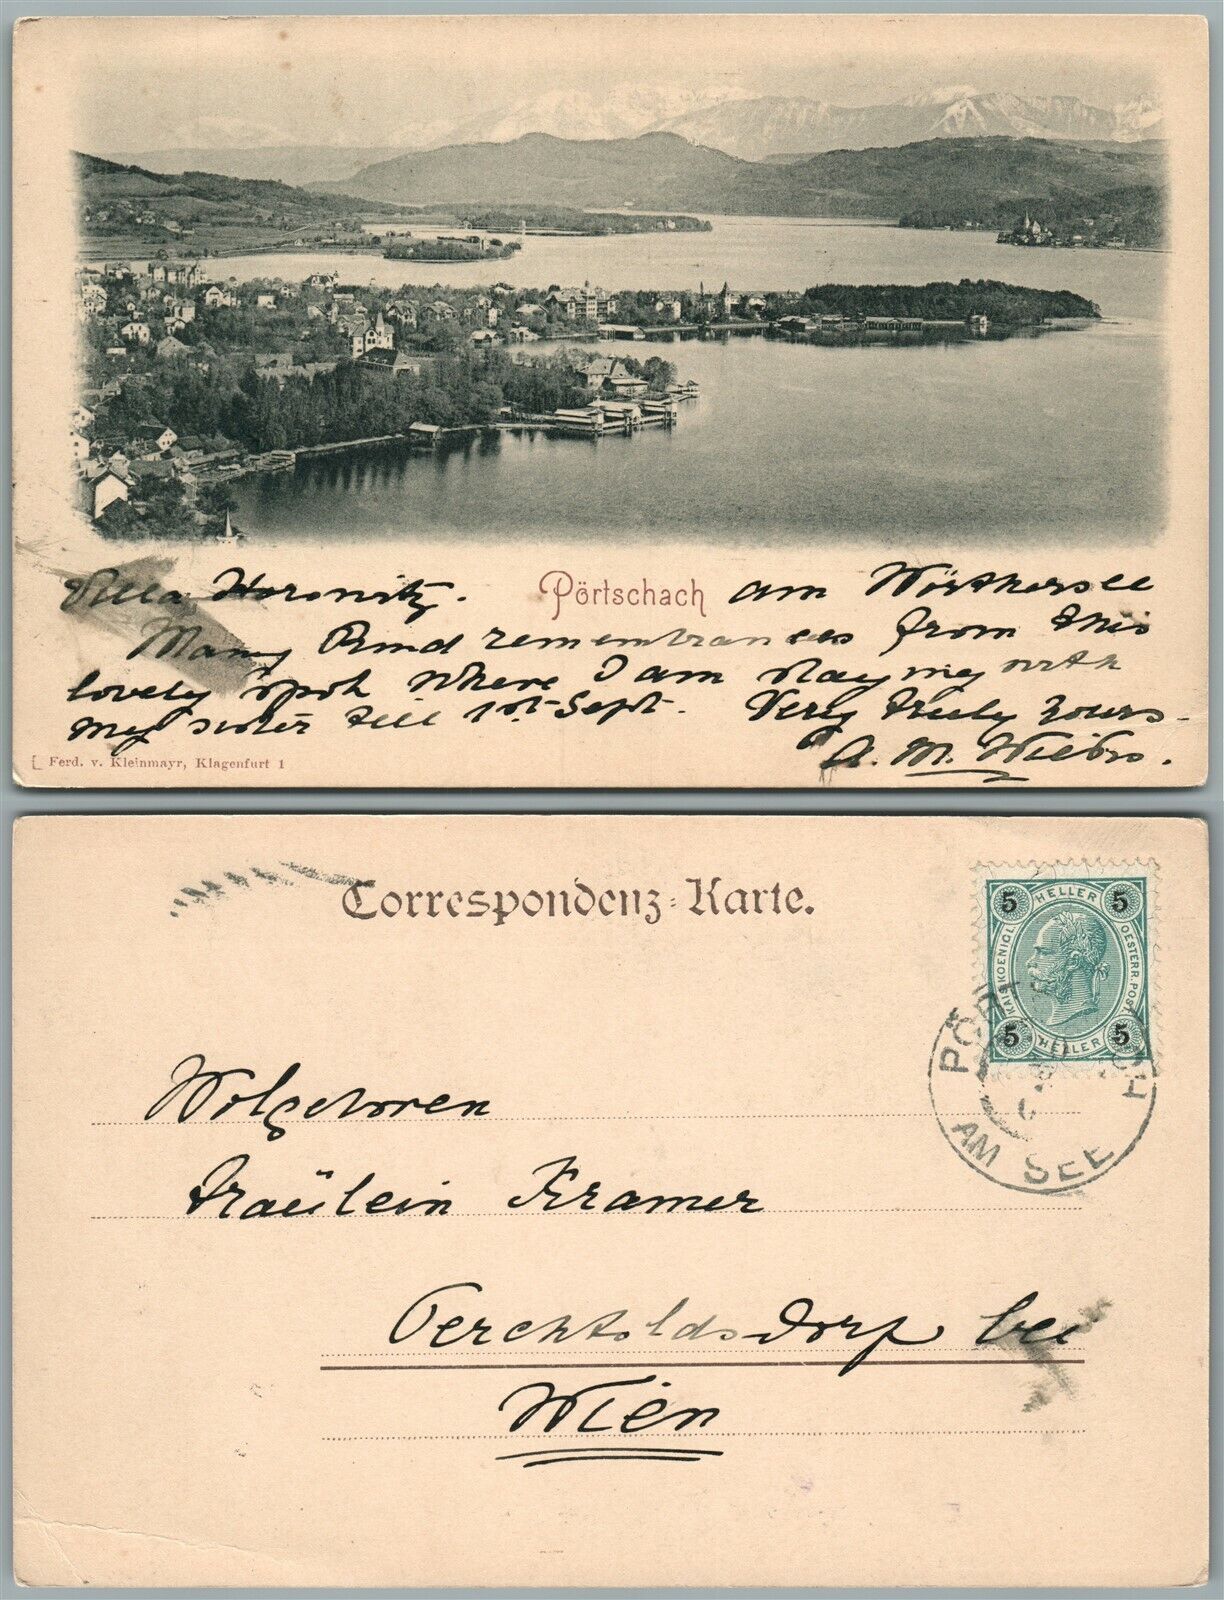 Villa Horowitz. Pörtschach am Wörthersee
Many kind remembrances from this
lovely spot where I am staying with
my sister till 1st Sept. Very truly yours
A. M.
Ferd. v. Kleinmayr, Klagenfurt 1
Correspondenz-Karte.
5 HELLER 5
KAIS. KOENIGL. OESTERR. POST
5 HELLER 5
PÖRTSCHACH
AM SEE
Wolgeboren
Fraülein Kramer
Perchtoldsdorf bei
Wien